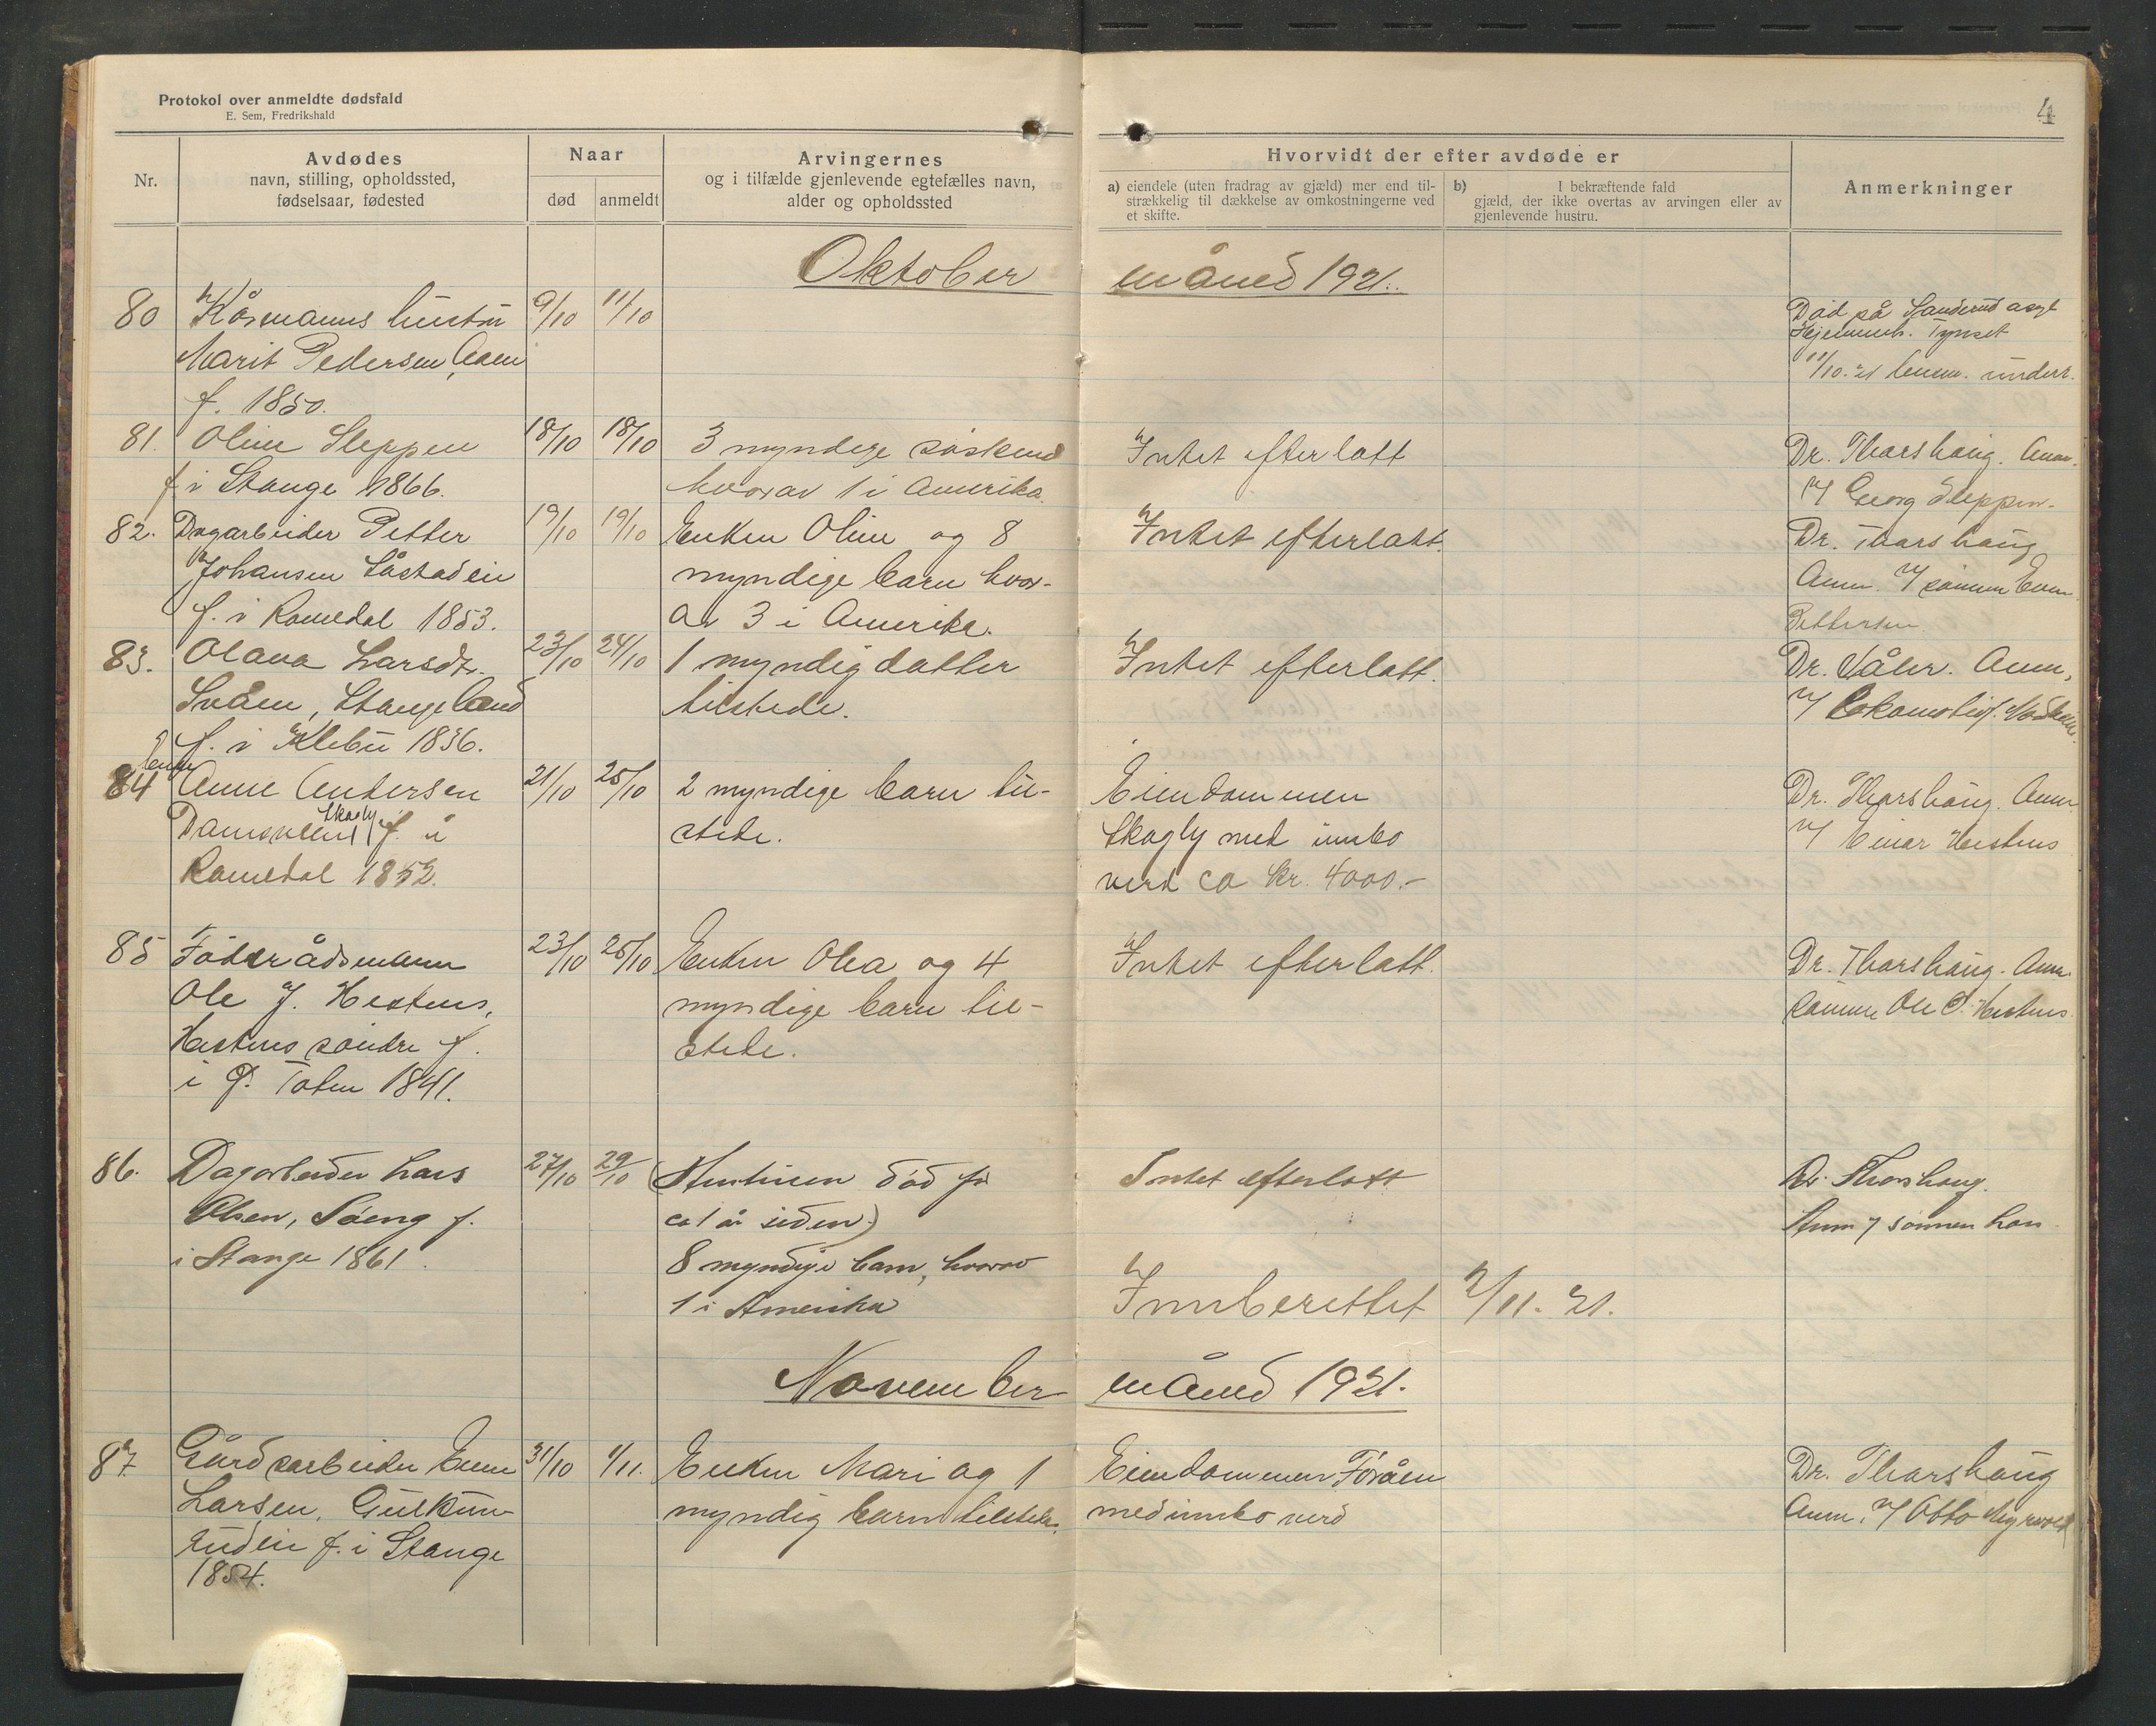 Protokol over anmeldte dødsfald
E. Sem, Fredrikshald
4
Nr.
Avdødes
navn, stilling, opholdssted,
fødselsaar, fødested
Naar
død
anmeldt
Arvingernes
og i tilfælde gjenlevende egtefælles navn,
alder og opholdssted
Hvorvidt der efter avdøde er
a) eiendele (uten fradrag av gjæld) mer end til-
strækkelig til dækkelse av omkostningerne ved
et skifte.
b) I bekræftende fald
gjæld, der ikke overtas av arvingen eller av
gjenlevende hustru.
Anmerkninger
Oktober måned 1921.
80 Kårmanns hustru 9/10 11/10
Marit Pedersen
f. 1850.
Død på Sanderud asyl
Hjemmeh. Tynset
11/10.21 undert.
81. Oline Sleppen 18/10 18/10 3 myndige søskend Intet efterlatt Dr. Thorshaug. Anm.
f i Stange 1866. hvorav 1 i Amerika. v/ Georg Sleppen.
82. Dagarbeider Petter 19/10 19/10 Enken Oline og 8 Intet efterlatt. Dr. Thorshaug
Johansen Såstadeie myndige barn hvor- Anm. v/ sønnen Even
f. i Romedal 1853. av 3 i Amerika. Pettersen
83. Olava Larsdt. 23/10 24/10 1 myndig datter Intet efterlatt. Dr. Våler. Anm,
Svåen, Stangeland tilstede. v/ Lokomotivf.
f. i Klebu 1836.
84 Anne Andersen 21/10 25/10 2 myndige barn til- Eiendommen Dr. Thorshaug. Anm
Skogly f. i stede. Skogly med innbo v/ Einar Hestnes
Romedal 1852. verd ca kr. 4000.-
85 Föderådsmann 23/10 25/10 Enken Olea og 4 Intet efterlatt. Dr. Thorshaug. Anm.
Ole J. Hestnes, myndige barn til- sønnen Ole O. Hestnes.
Hestnes søndre f. stede.
i Ø. Toten 1841.
86. Dagarbeider Lars 27/10 29/10 (Hustruen død for Intet efterlatt Dr. Thorshaug.
Olsen, Såeng f. ca 1 år siden) Anm v/ sønnen
i Stange 1861. 8 myndige barn, hvorav
1 i Amerika
Innberettet 2/11. 21.
November måned 1921.
87. Gårdsarbeider Even 31/10 1/11. Enken Mari og 1 Eiendommen Føråen Dr. Thorshaug
Larsen, Gulkun- myndig barn tilstede. med innbo verd Anm. v/ Otto Myrvold
rudeie f. i Stange
1854.